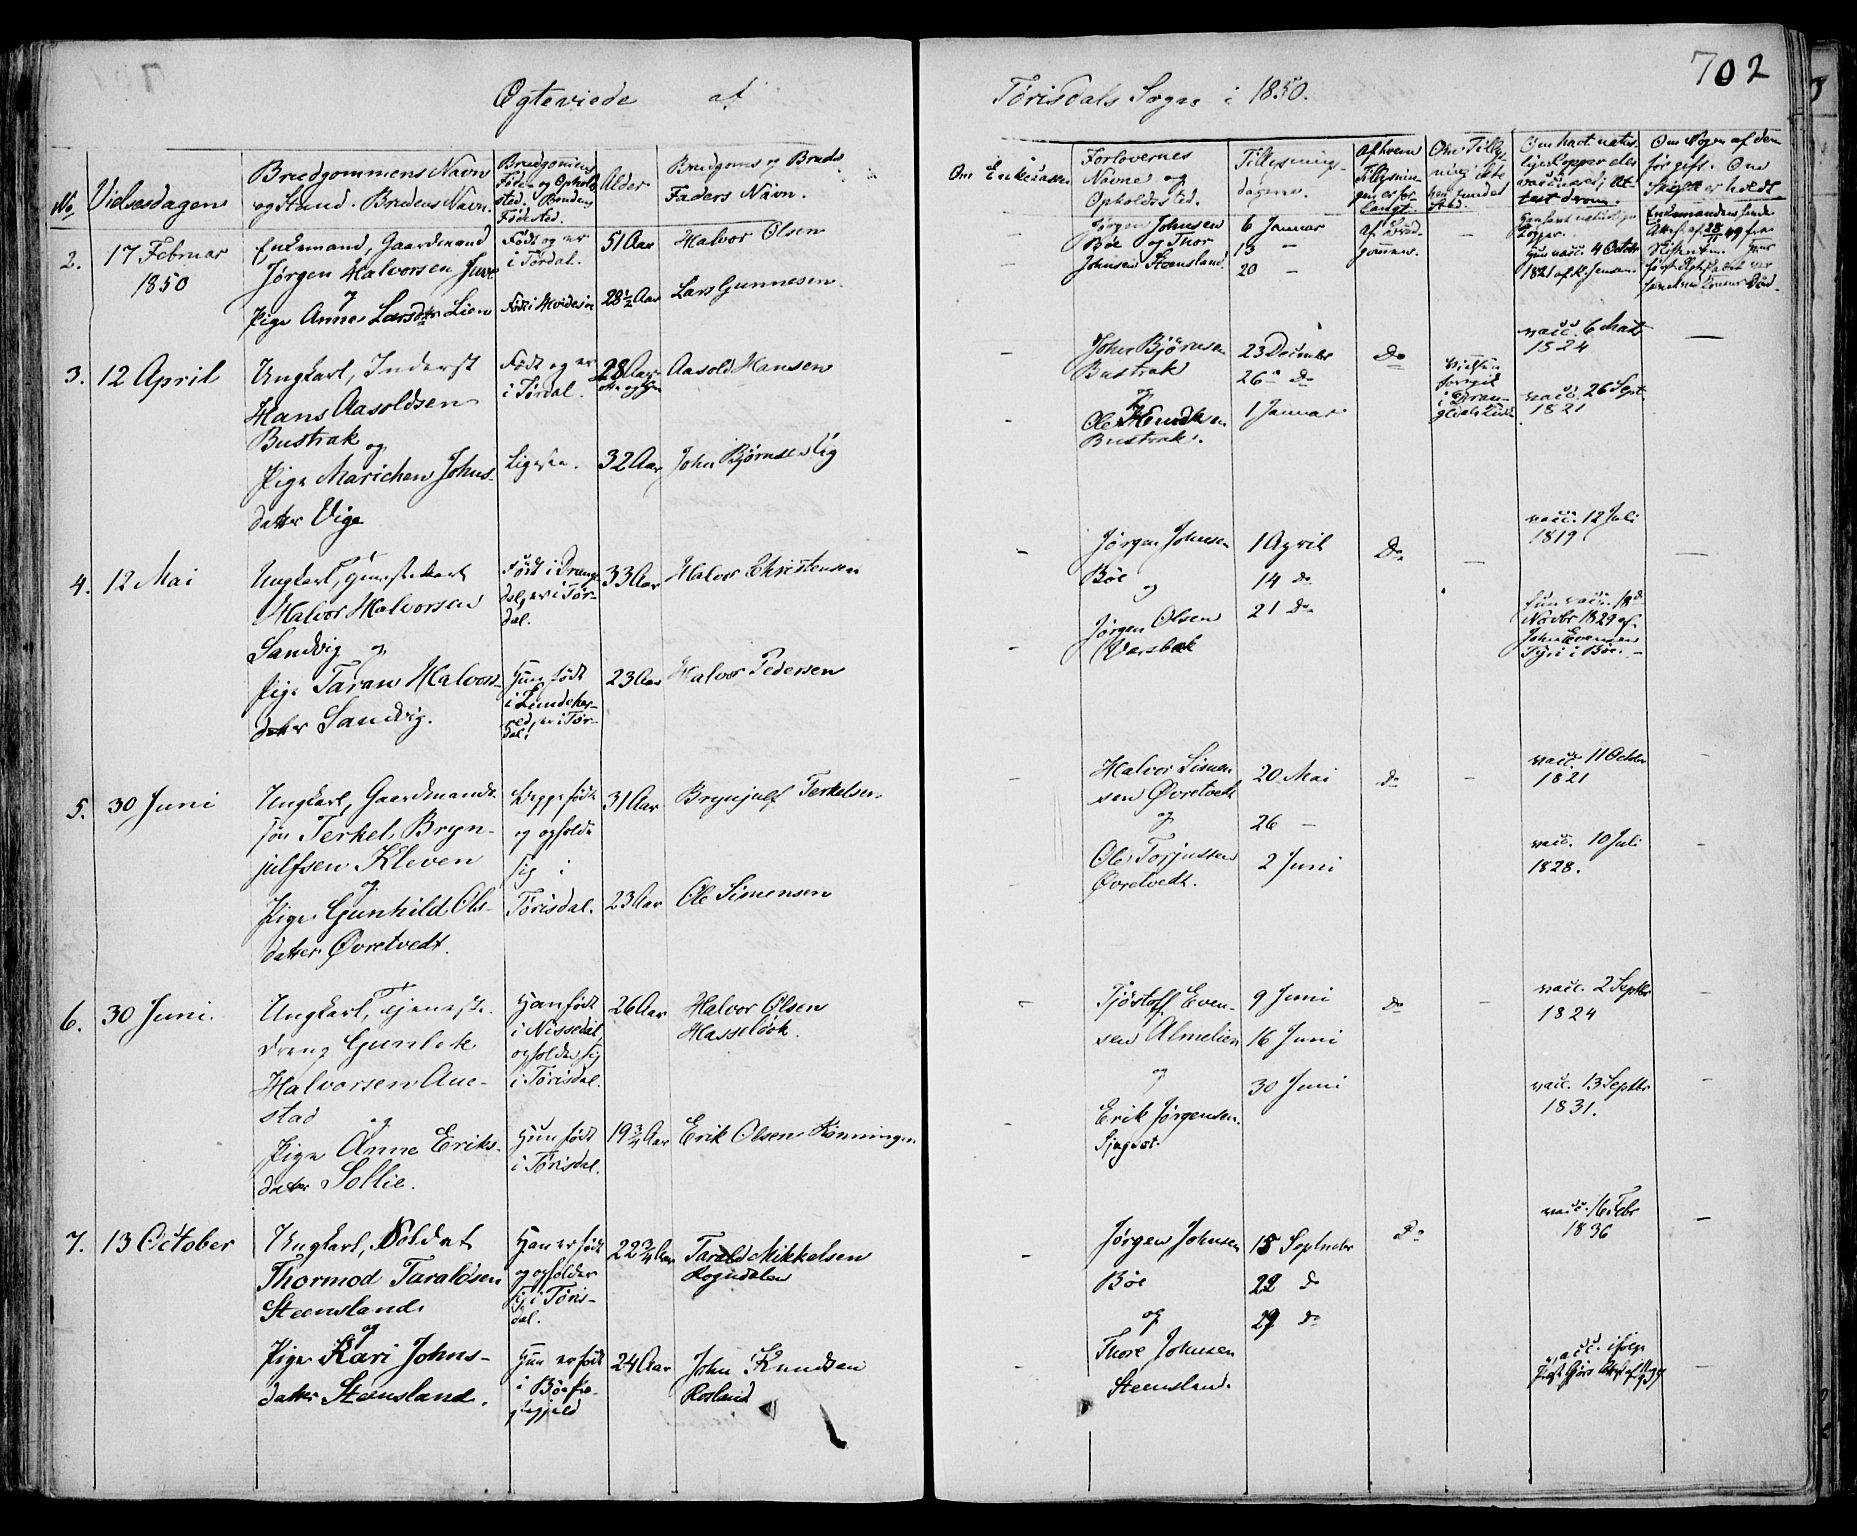 702
Ogteviede af Tørisdals Sogn i 1850.
No
Vielsesdagene
Brudgommens Navn
og Stand. Brudens Navn.
Brudgomens
Føde- og Ophold-
sted. Brudens
Fødested.
Alder
Brudgoms og Bruds
Faders Navn.
Om Enkecassen
Forlovernes
Navne og
Opholdssted.
Tillysnings-
dagene.
Af hvem
Tillysnin-
gen er for-
langt.
Om Tillys-
ning ikke
har fundet
Sted.
Om havt natur-
lige Kopper eller
vaccineret; At-
test derom.
Om Nogen af dem
før gift. Om
Skifte er holdt
2. 17 Februar
1850
Enkemand, Gaardmand
Jørgen Halvorsen Juve
og
Pige Anne Larsdatter Lien
Født og er
i Tørdal.
Født i Hvidesøe
51 Aar
28 1/2 Aar
Halvor Olsen
Lars Gunnesen
-
Jørgen Johnsen
Bøe og Thor
Johnsen Steensland
6 Januar
13 -
20 -
af Brud-
gommen.
Han havt naturlige
Kopper.
Hun vacc. 4 October
1821 af K. Jensen.
3. 12 April
Ungkarl, Inderst
Hans Aasoldsen
Bustrak og
Pige Marichen Johns-
datter Vige
Født og er
i Tørdal.
Ligesaa.
28 Aar
32 Aar
Aasold Hansen
John Bjørnsen Vig
-
John Bjørnsen
Bustrak
og
Ole Knudsen
Bustrak.
23 December
26 do
1 Januar
Do
Vielsen
foregik
i Dran-
gedals Kirke
vacc. 6 Mai
1824
vacc. 26 Sept
1821
-
4. 12 Mai
Ungkarl, Tjenestekarl
Halvor Halvorsen
Sandvig og
Pige Taran Halvors-
datter Sandvig.
Født i Drange-
dal, er i Tør-
dal.
Hun født
i Lundeher-
red, er i Tør-
dal.
33 Aar
23 Aar
Halvor Christensen
Halvor Pedersen
-
Jørgen Johnsen
Bøe
og
Jørgen Olsen
Varsbak
1 April
14 do
21 do
Do
-
vacc. 12 Juli
1819
Hun vacc. 18de
Novbr 1829 af
John Evensen
Tyri i Bøe. -
-
5. 30 Juni
Ungkarl, Gaardmands-
søn Terkel Bryn-
julfsen Kleven
og
Pige Gunhild Ols-
datter Øvretvedt.
Begge født
og opholde
sig i
Tørisdal.
31 Aar
23 Aar
Brynjulf Terkelsen
Ole Simensen
-
Halvor Simen-
sen Øvretvedt
og
Ole Torjussen
Øvretvedt.
20 Mai
26 -
2 Juni
do
-
vacc. 11 October
1821
vacc. 10 Juli
1828.
-
6. 30 Juni.
Ungkarl, Tjeneste-
dreng Gunlek
Halvorsen Aue-
stad og
Pige Anne Eriks-
datter Sollie.
Han født
i Nissedal,
opholder sig
i Tørisdal.
Hun født
i Tørisdal.
26 Aar
19 3/4 Aar
Halvor Olsen
Hasseløok.
Erik Olsen Rønningen
-
Tjøstolf Even-
sen Almelien
og
Erik Jørgensen
9 Juni
16 Juni
30 Juni
do
-
vacc. 2 Septbr
1824
vacc. 13 Septbr
1831.
-
7. 13 October
Ungkarl, Soldat
Thormod Taraldsen
Steensland
og
Pige Kari Johns-
datter Steensland.
Han er født
og opholder
sig i Tøris-
dal.
Hun er født
i Bøe Præ-
stegjeld
22 3/4 Aar
24 Aar
Tarald Mikkelsen
Rogndalen
John Knudsen
Rosland
-
Jørgen Johnsen
Bøe
og
Thore Johnsen
Steensland.
15 Septmbr
22 do
29 do
Do
vacc. 16 Febr
1836
-